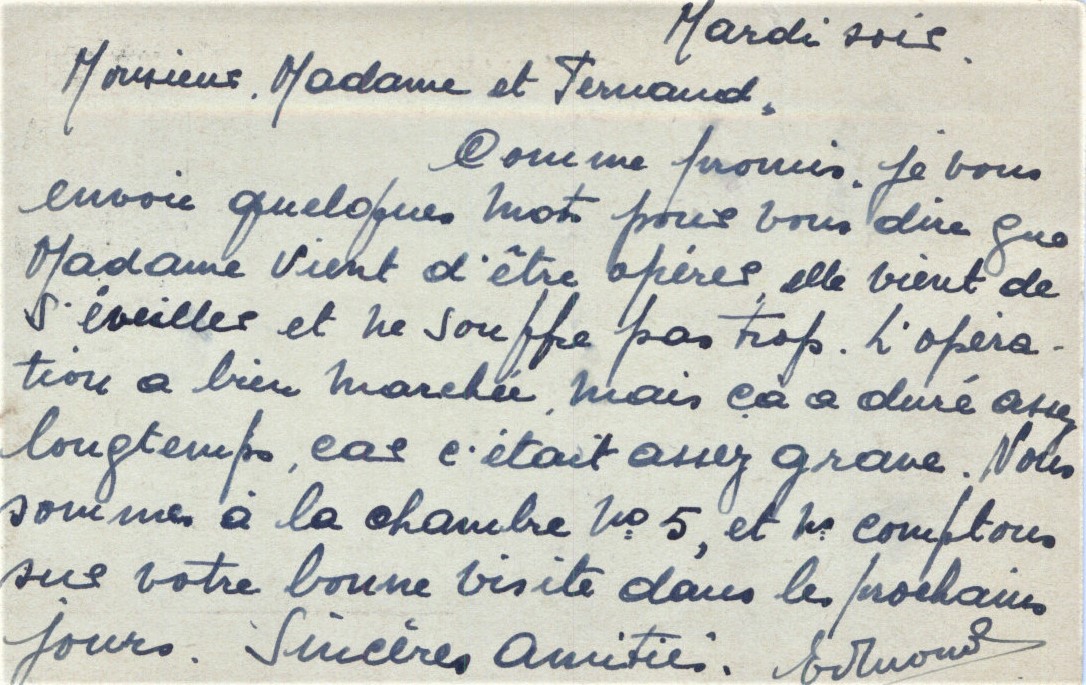 Mardi soir.
Monsieur, Madame et Fernand,
Comme promis, je vous
envoie quelques mots pour vous dire que
Madame vient d'être opérée, elle vient de
s'éveiller et ne souffre pas trop. L'opéra-
tion a bien marchée, mais ça a duré assez
longtemps, car c'était assez grave. Nous
sommes à la chambre No 5, et ns comptons
sur votre bonne visite dans les prochains
jours. Sincères Amitiés. Edmond